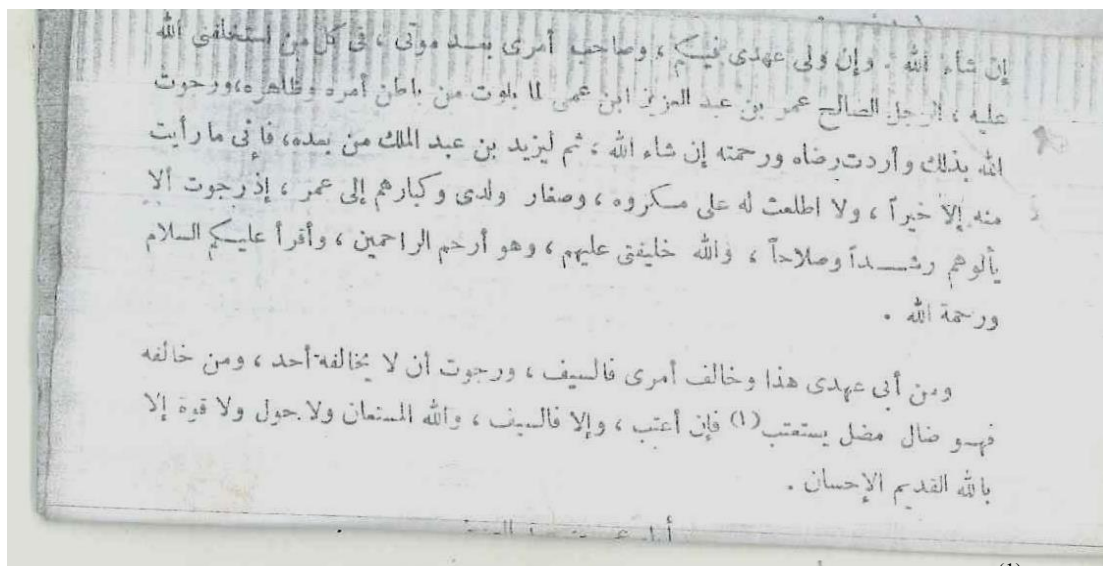 إن شاء الله . وإن ولى عهدى فيكم ، وصاحب أمرى بعد موتى ، فى كل من استخلفنى الله
عليه ، الرجل الصالح عمر بن عبد العزيز ابن عمى لما بلوت من باطن أمره وظاهره، ورجوت
الله بذلك وأردت رضاه ورحمته إن شاء الله ، ثم ليزيد بن عبد الملك من بعده، فإنى ما رأيت
منه إلا خيراً ، ولا اطلعت له على مكروه ، وصغار ولدى وكبارهم إلى عمر ، إذ رجوت ألا
يألوهم رشداً وصلاحاً ، والله خليفتى عليهم ، وهو أرحم الراحمين ، وأقرأ عليكم السلام
ورحمة الله .
ومن أبى عهدى هذا وخالف أمرى فالسيف ، ورجوت أن لا يخالفه أحد ، ومن خالفه
فهو ضال مضل يستعتب (١) فإن أعتب ، وإلا فالسيف ، والله المستعان ولا حول ولا قوة إلا
بالله القديم الإحسان .
(1)